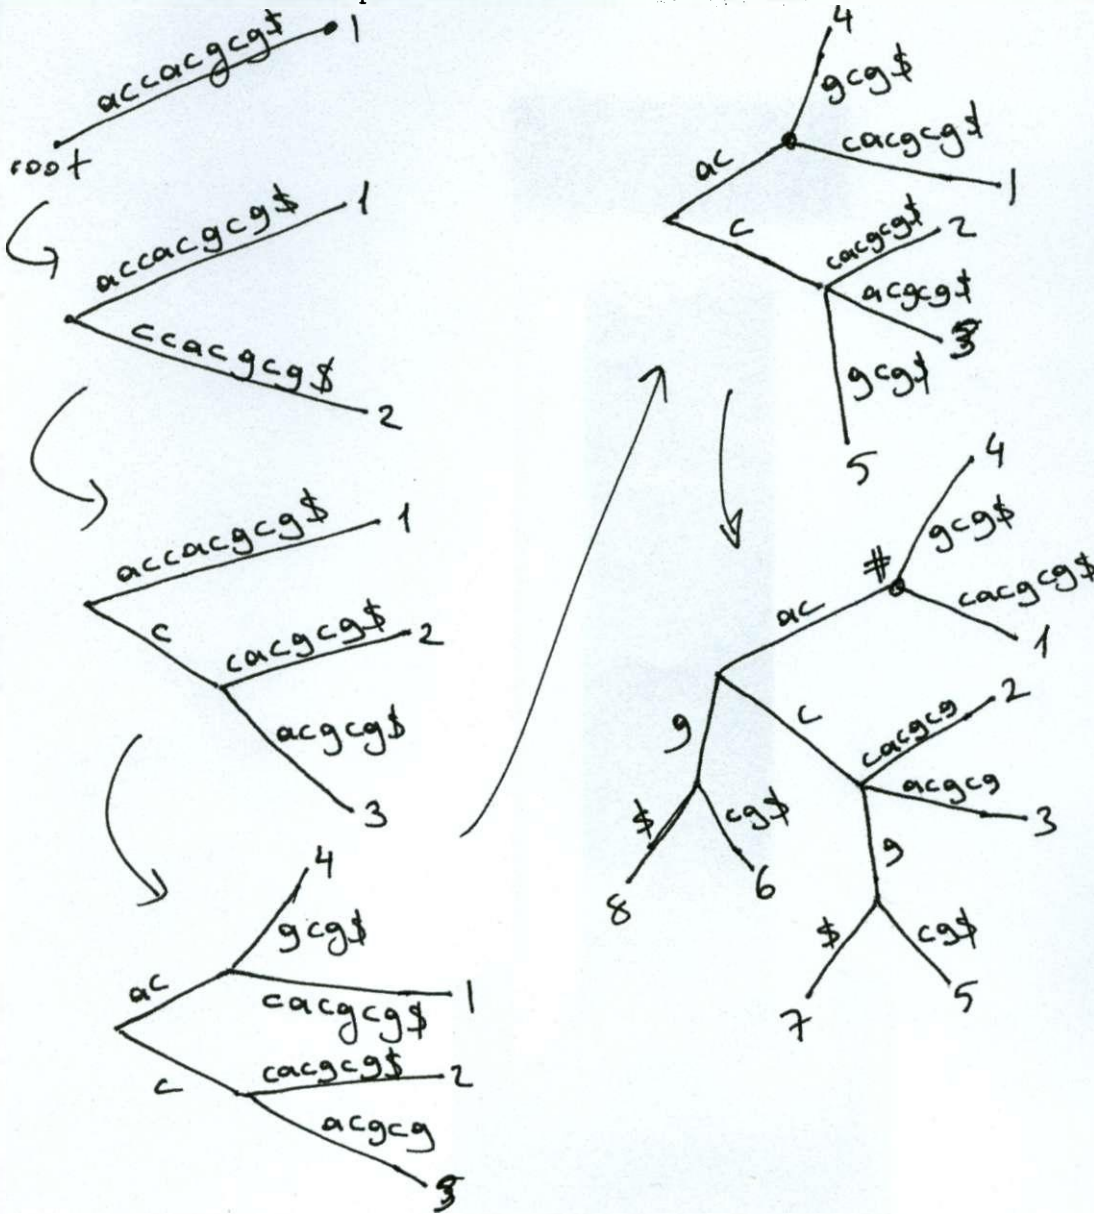 accacgcg$ 1
root
accacgcg$ 1
ccacgcg$ 2
accacgcg$ 1
c
cacgcg$ 2
acgcg$
3
4
gcg$
ac
cacgcg$ 1
c
cacgcg$ 2
acgcg
3
4
gcg$
ac
cacgcg$
1
c
cacgcg$ 2
acgcg$
3
gcg$
5
4
gcg$
#
ac
cacgcg$
1
c
cacgcg 2
acgcg
3
g
g
$
cg$
8
6
$
cg$
7
5